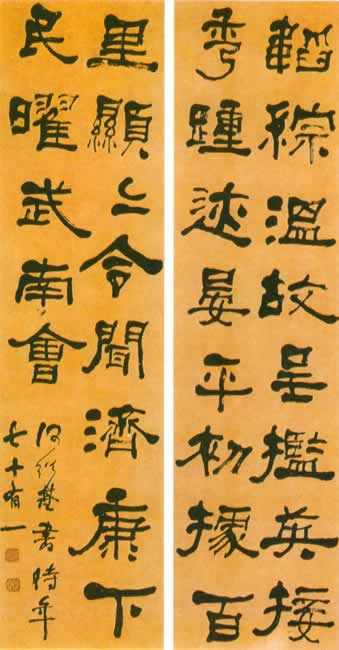 韜綜溫故呂㩜英接
秀踵迹晏平初據百
里顯々令聞濟康下
民曜武南會
何紹基書時年
七十有一